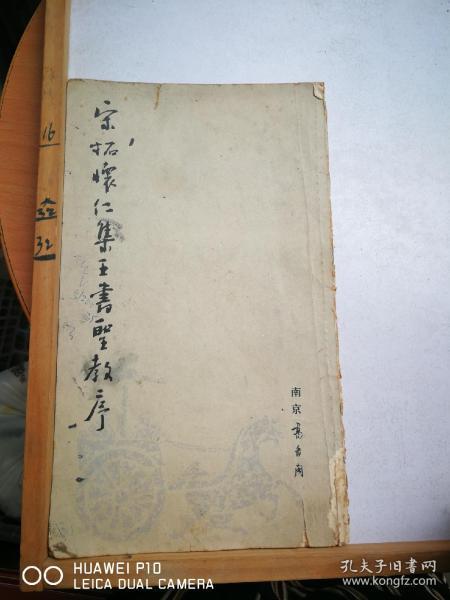 宋拓怀仁集王书聖教序
南京古旧书店
16
32
HUAWEI P10
LEICA DUAL CAMERA
孔夫子旧书网
kongfz.com